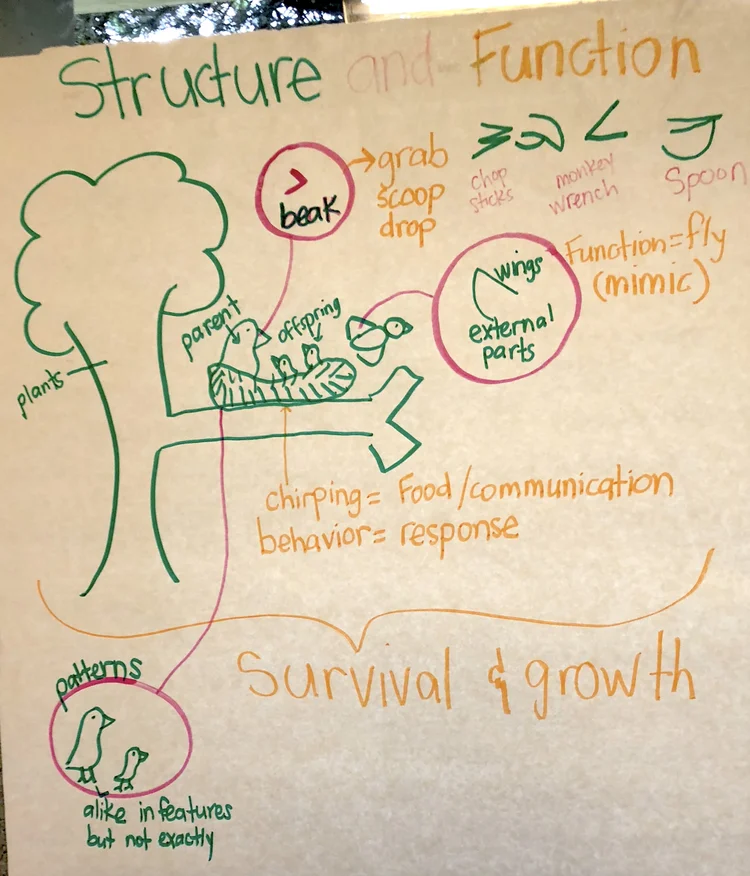 Structure and Function
> beak
→grab
scoop
drop
chop
sticks
monkey
wrench
Spoon
wings
external
parts
Function=fly
(mimic)
parent
offspring
plants
chirping= Food/communication
behavior= response
Survival & growth
patterns
alike in features
but not exactly